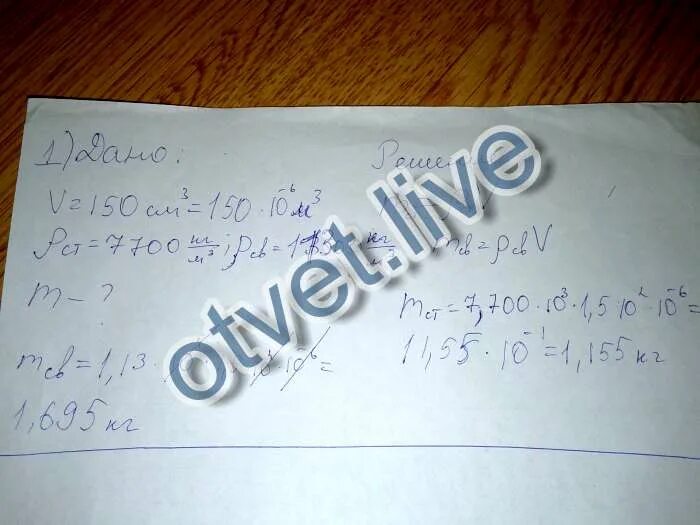 1) Дано:
V = 150 см³ = 150 · 10⁻⁶ м³
ρст = 7700 кг/м³; ρсв =
m – ?
mсв = ρсв V
mст = 7,700 · 10³ · 1,5 · 10² · 10⁻⁶ =
11,55 · 10⁻¹ = 1,155 кг
mсв = 1,13 ·
1,695 кг
otvet.live